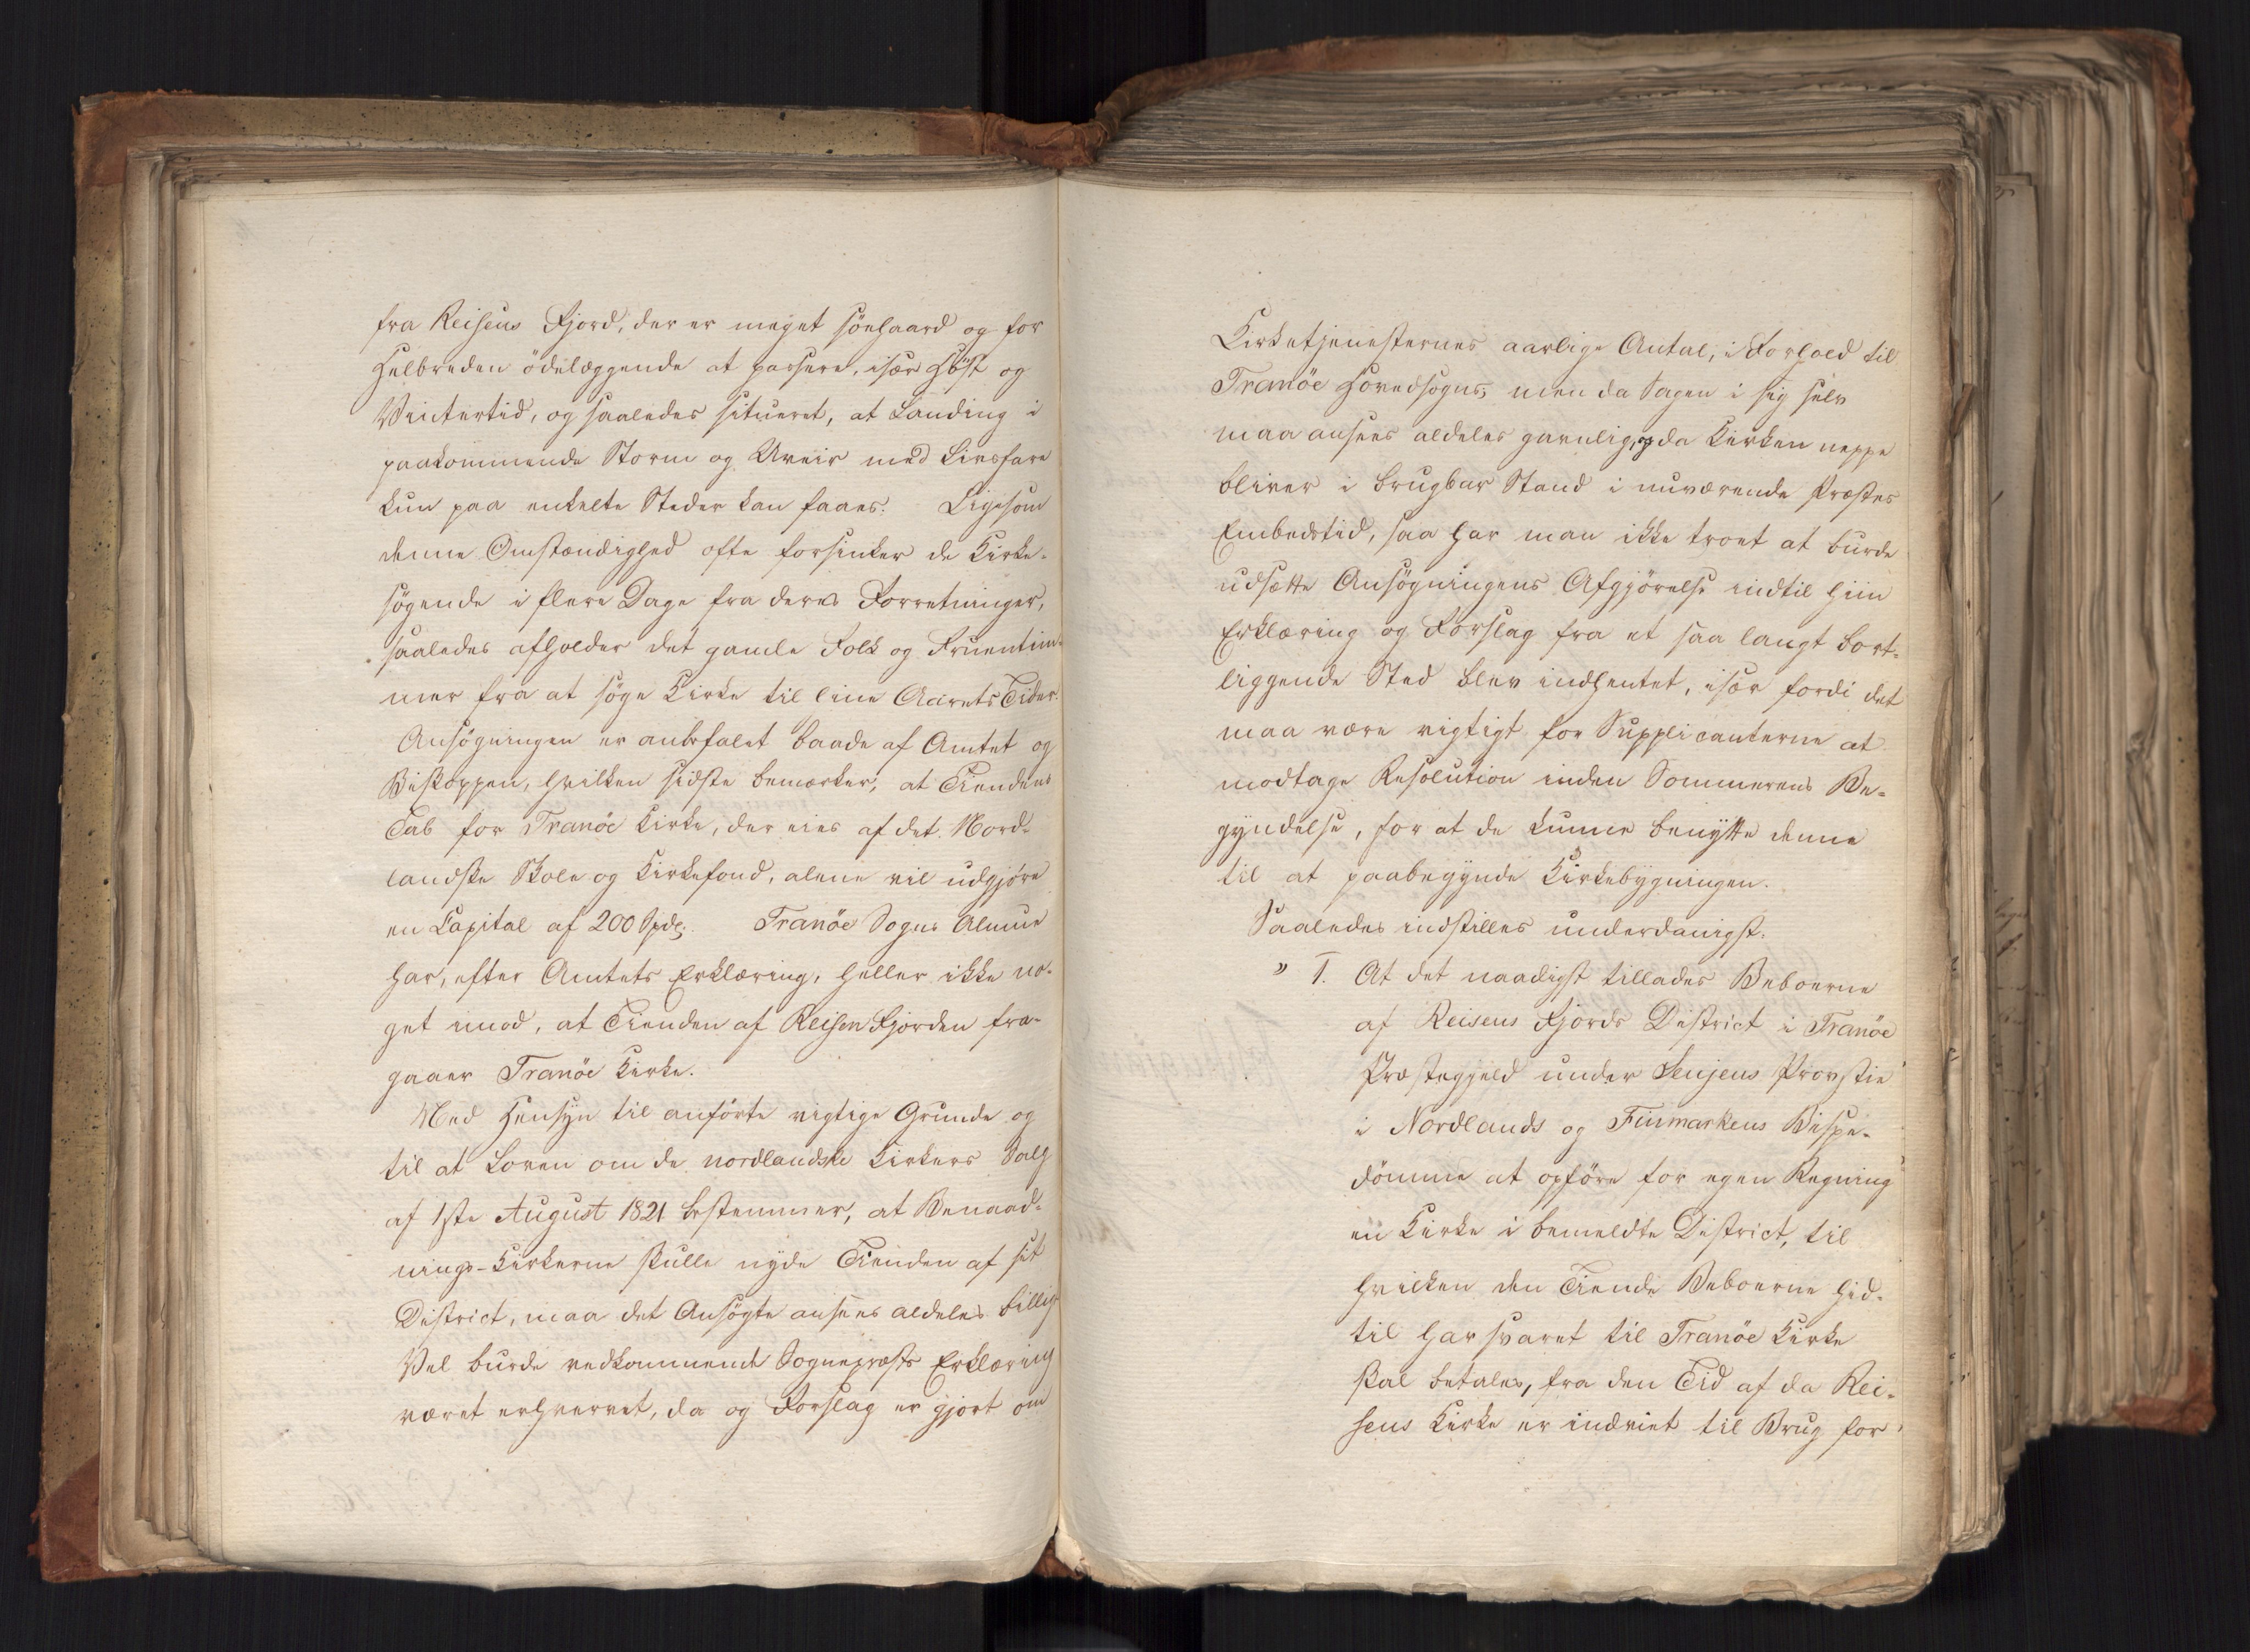 fra Reisens Fjord, der er meget söehaard og for
Helbreden ödelæggende at passere, især Höst og
Vintertid, og saaledes situeret, at Landing i
paakommende Storm og Uveir med Livsfare
kun paa enkelte Steder kan faaes. Ligesom
denne Omstændighed ofte forsinker de Kirke-
søgende i flere Dage fra deres Forretninger,
saaledes afholder det gamle Folk og Fruentim-
mer fra at söge Kirke til sine Aarets Tider.
Ansögningen er anbefalet baade af Amtet og
Biskoppen, hvilken sidste bemærker, at Tiendens
Tab for Tranöe Kirke, der eies af det Nord-
landske Skole og Kirkefond, alene vil udgjöre
en Capital af 200 Spd. Tranöe Sogns Almue
har, efter Amtets Erklæring, heller ikke no-
get imod, at Tienden af Reisen Fjorden fra-
gaaer Tranöe Kirke.
Med Hensyn til anförte vigtige Grunde og
til at Loven om de nordlandske Kirkers Salg
af 1ste August 1821 bestemmer, at Benaad-
nings-Kirkerne skulle nyde Tienden af sit
District, maa det Ansögte ansees aldeles billig
Vel burde vedkommende Sognepræsts Erklæring
været erhvervet, da og Forslag er gjort om
Kirketjenesternes aarlige Antal, i Forhold til
Tranöe Hovedsogns; men da Sagen i sig selv
maa ansees aldeles gavnlig, og da Kirken neppe
bliver i brugbar Stand i nuværende Præstes
Embedstid, saa har man ikke troet at burde
udsætte Ansögningens Afgjörelse indtil hiin
Erklæring og Forslag fra et saa langt bort-
liggende Sted blev indhentet, især fordi det
maa være vigtigt for Supplicanterne at
modtage Resolution inden Sommerens Be-
gyndelse, for at de kunne benytte denne
til at paabegynde Kirkebygningen.
Saaledes indstilles underdanigst:
" 1. At det naadigst tillades Beboerne
af Reisens Fjords District i Tranöe
Præstegjeld under Senjens Provstie
i Nordlands og Finmarkens Bispe-
dömme at opföre for egen Regning
en Kirke i bemeldte District, til
hvilken den Tiende Beboerne hid-
til har svaret til Tranöe Kirke
skal betales, fra den Tid af da Rei-
sens Kirke er indviet til Brug for